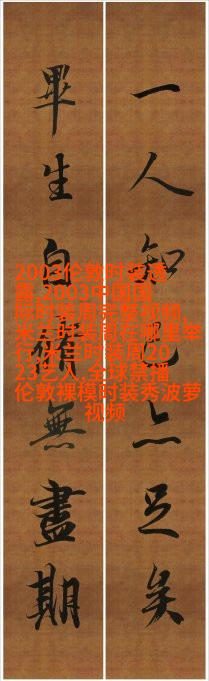 一人知己亦足矣
畢生自修無盡期
2003伦敦时装透
露,2003中国国
际时装周完整视频,
米兰时装周在哪里举
行,米兰时装周20
23艺人,全球禁播
伦敦裸模时装秀波萝
视频